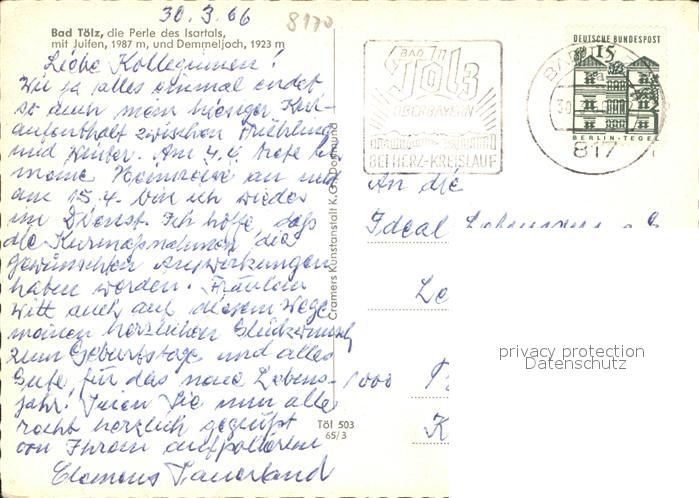 30.3.66
8170
Bad Tölz, die Perle des Isartals,
mit Juifen, 1987 m, und Demmeljoch, 1923 m
Liebe Kolleginnen!
Wie ja alles einmal endet
so auch mein hiesiger Kur-
aufenthalt zwischen Frühling
und Winter. Am 4.4. trete ich
meine Heimreise an und
am 15.4. bin ich wieder
im Dienst. Ich hoffe, daß
die Kurmaßnahmen die
gewünschten Auswirkungen
haben werden. Fräulein
Witt auch auf diesem Wege
meinen herzlichen Glückwunsch
zum Geburtstage und alles
Gute für das neue Lebens-
jahr! Seien Sie nun alle
recht herzlich gegrüßt
von Ihrem
Clemens Sauerland
Cramers Kunstanstalt K.G., Dortmund
Töl 503
65/3
BAD
Tölz
OBERBAYERN
BEI HERZ-KREISLAUF
DEUTSCHE BUNDESPOST
15
BERLIN-TEGEL
BAD
a
30.
817
An die
Ideal
1000
K
privacy protection
Datenschutz